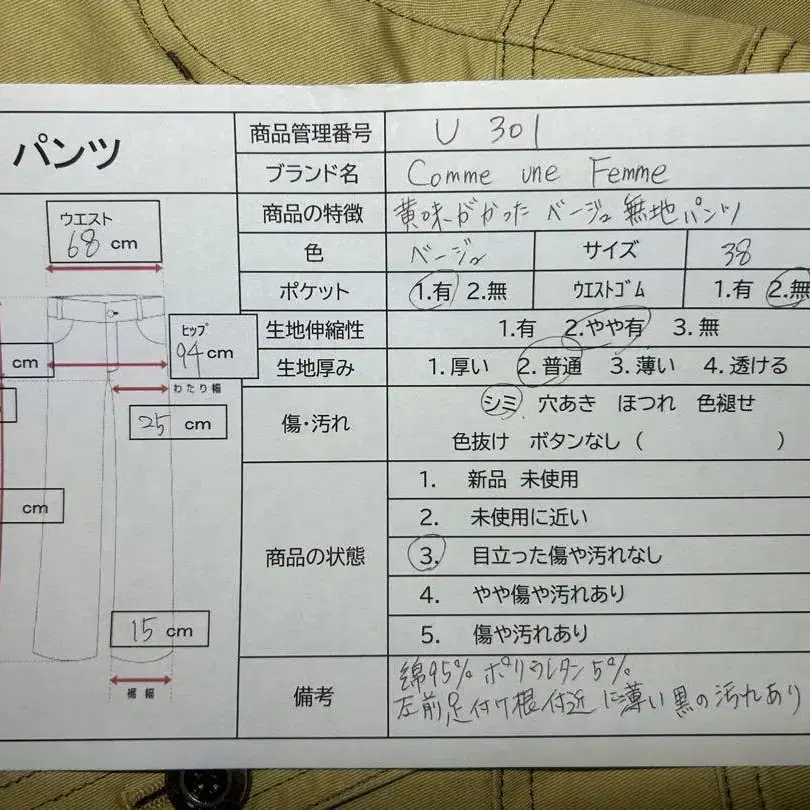 パンツ
商品管理番号 U 301
ブランド名 Comme une Femme
商品の特徴 黄味がかった ベージュ 無地パンツ
色 ベージュ サイズ 38
ポケット 1.有 2.無 ウエストゴム 1.有 2.無
生地伸縮性 1.有 2.やや有 3.無
生地厚み 1.厚い 2.普通 3.薄い 4.透ける
傷・汚れ シミ 穴あき ほつれ 色褪せ
色抜け ボタンなし ( )
商品の状態
1. 新品 未使用
2. 未使用に近い
3. 目立った傷や汚れなし
4. やや傷や汚れあり
5. 傷や汚れあり
備考
綿95% ポリウレタン5%
左前足付け根付近に薄い黒の汚れあり
ウエスト
68 cm
ヒップ
94 cm
cm
わたり幅
25 cm
cm
15 cm
裾幅